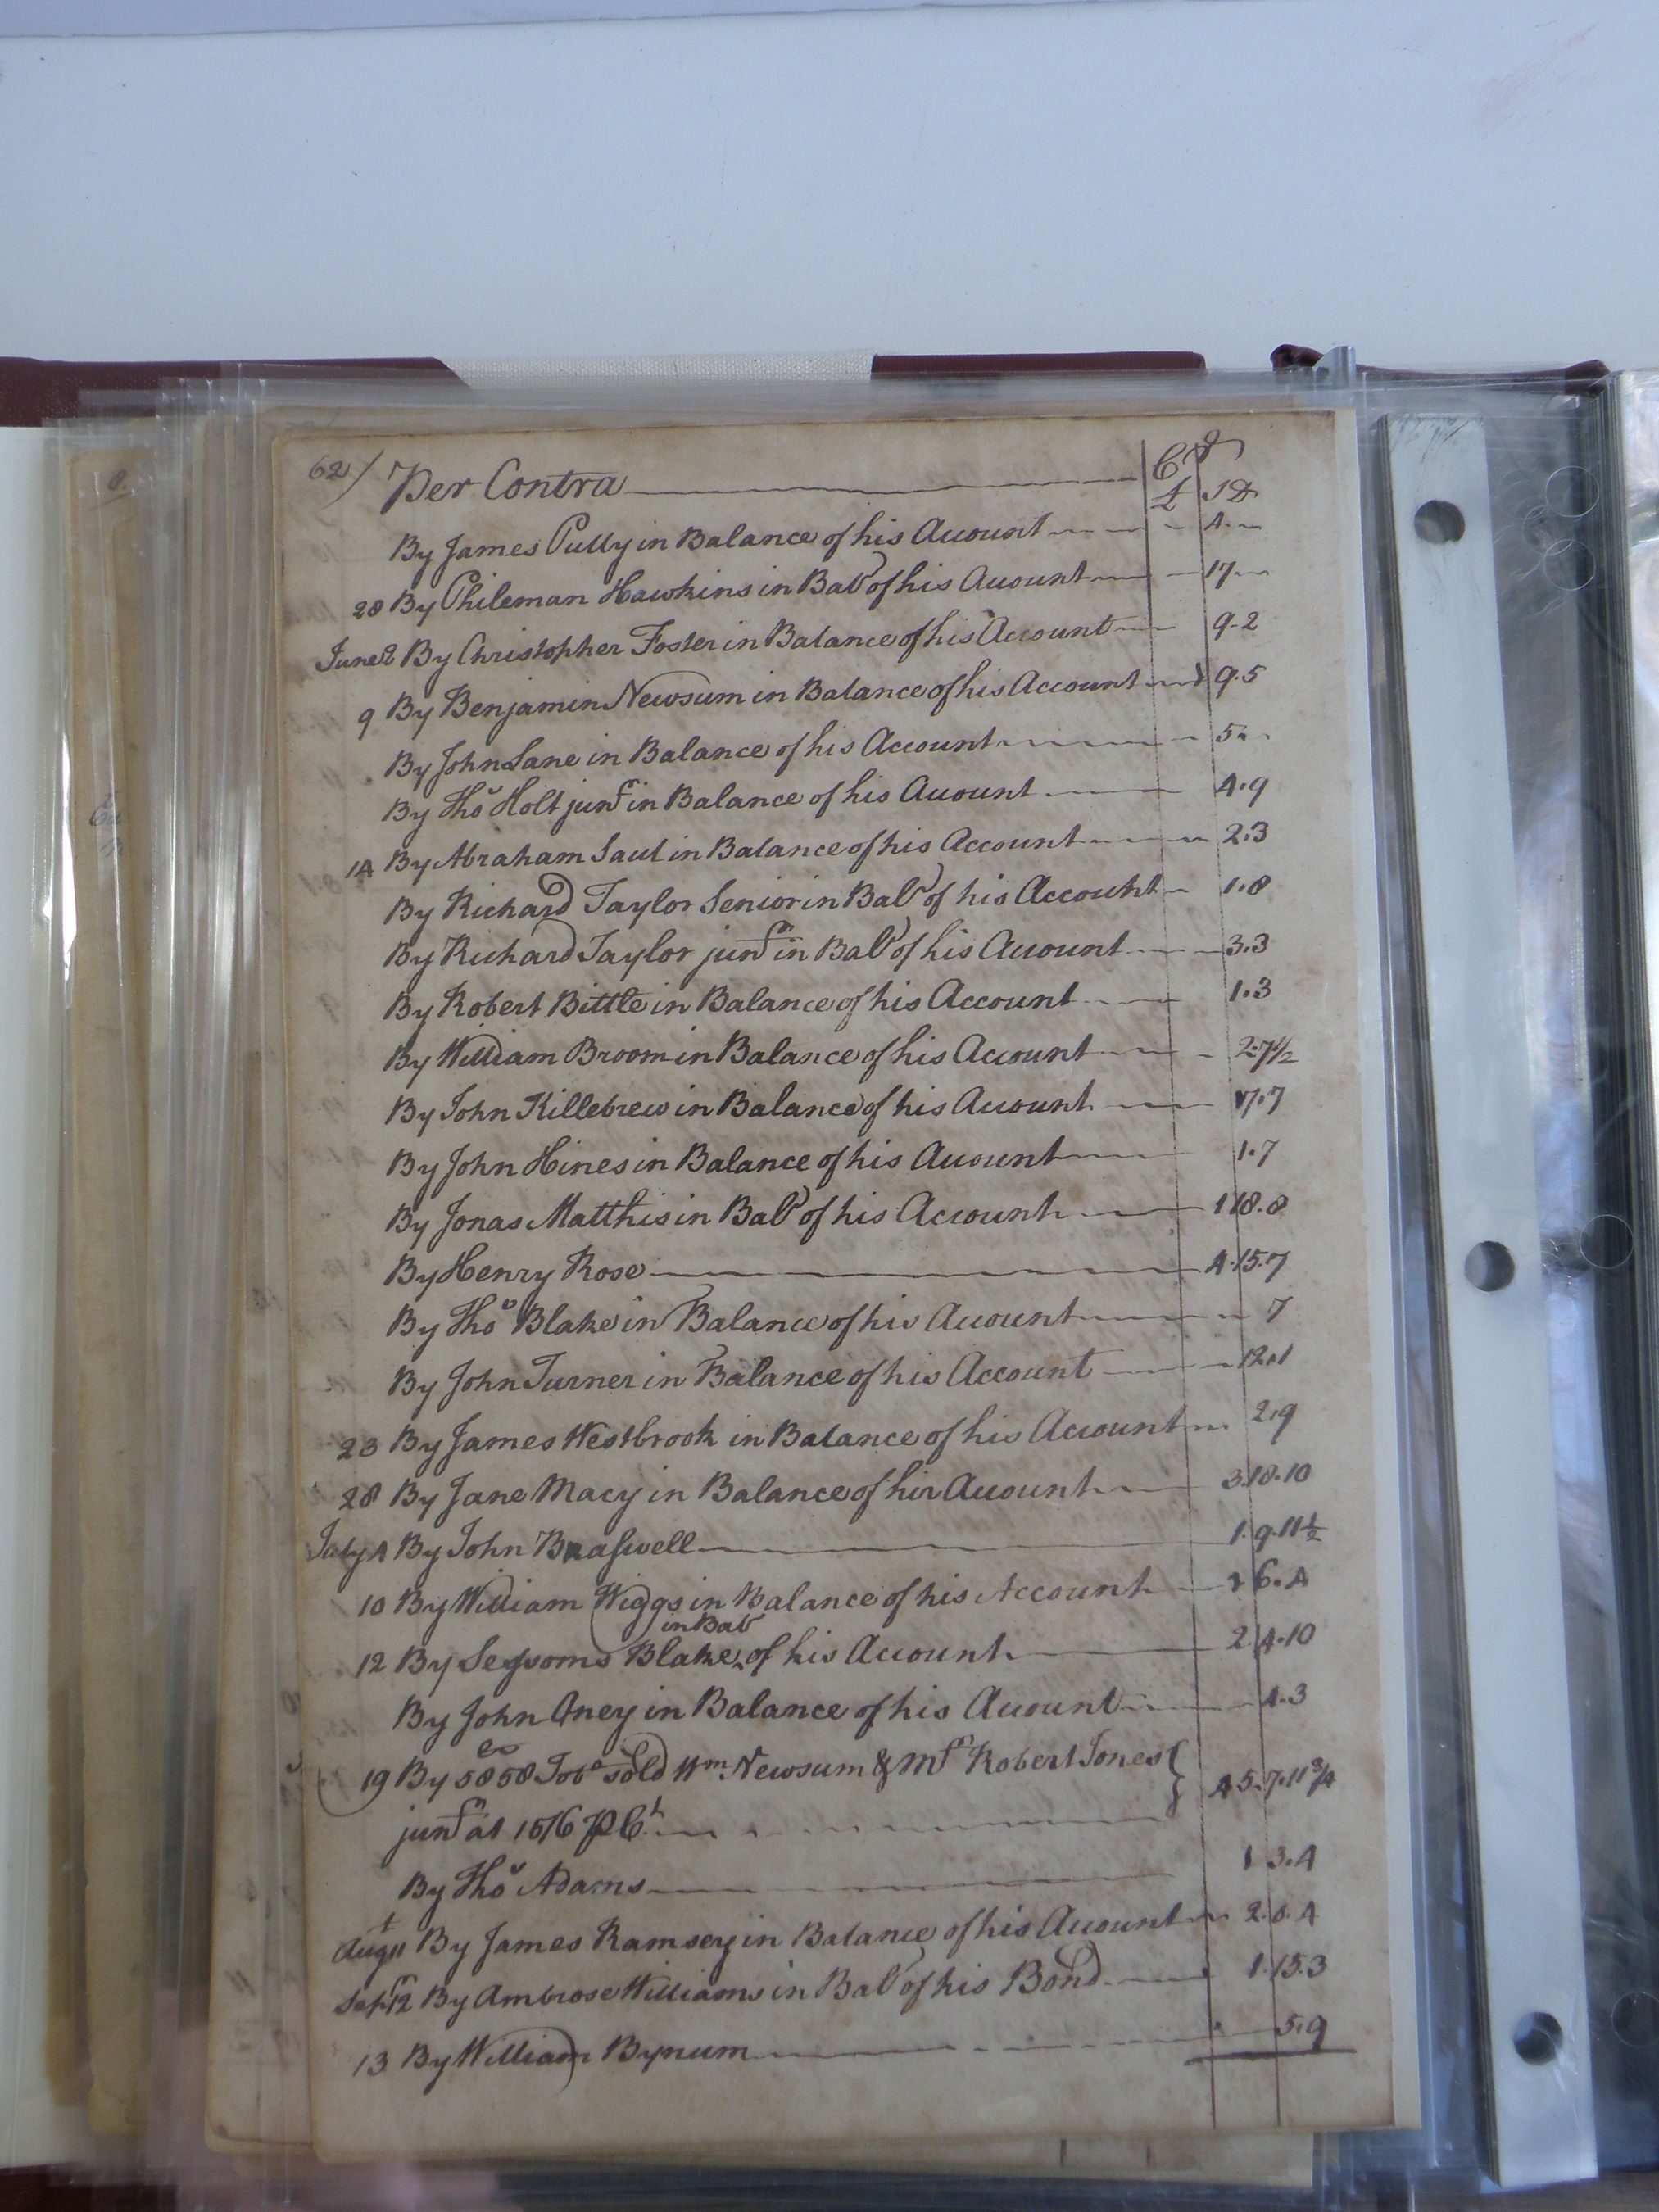 62/ Per Contra Cr
£ S D
By James Pully in Balance of his Account 4.
28 By Phileman Hawkins in Bal? of his Account 17
June 2 By Christopher Foster in Balance of his Account 9.2
9 By Benjamin Newsum in Balance of his Account 9.5
By John Lane in Balance of his Account 5
By Tho.s Holt junr in Balance of his Account 4.9
14 By Abraham Saul in Balance of his Account 2.3
By Richard Taylor Senior in Bal? of his Account 1.8
By Richard Taylor junr in Bal? of his Account 3.3
By Robert Bittle in Balance of his Account 1.3
By William Broom in Balance of his Account 2.7 1/2
By John Killebrew in Balance of his Account 7.7
By John Hines in Balance of his Account 1.7
By Jonas Matthis in Bal? of his Account 1 18.8
By Henry Rose 4.15.7
By Thos Blake in Balance of his Account 7
By John Turner in Balance of his Account 12.1
23 By James Westbrook in Balance of his Account 2.9
28 By Jane Macy in Balance of hir Account 3.18.10
July 4 By John Braswell 1.9.11 1/2
10 By William Wiggs in Balance of his Account 6.4
in Bal?
12 By Sessoms Blake ‸ of his Account 2.4.10
By John Aney in Balance of his Account 4.3
19 By 5858 Tobo sold Wm Newsum & Mr Robert Jones } 45.7.11 3/4
junr at 15/6 P Ct
By Thos Adams 1 3.4
Augt 11 By James Ramsey in Balance of his Account 2.8.4
Sepr 12 By Ambrose Williams in Bal? of his Bond 1.15.3
13 By William Bynum 5.9